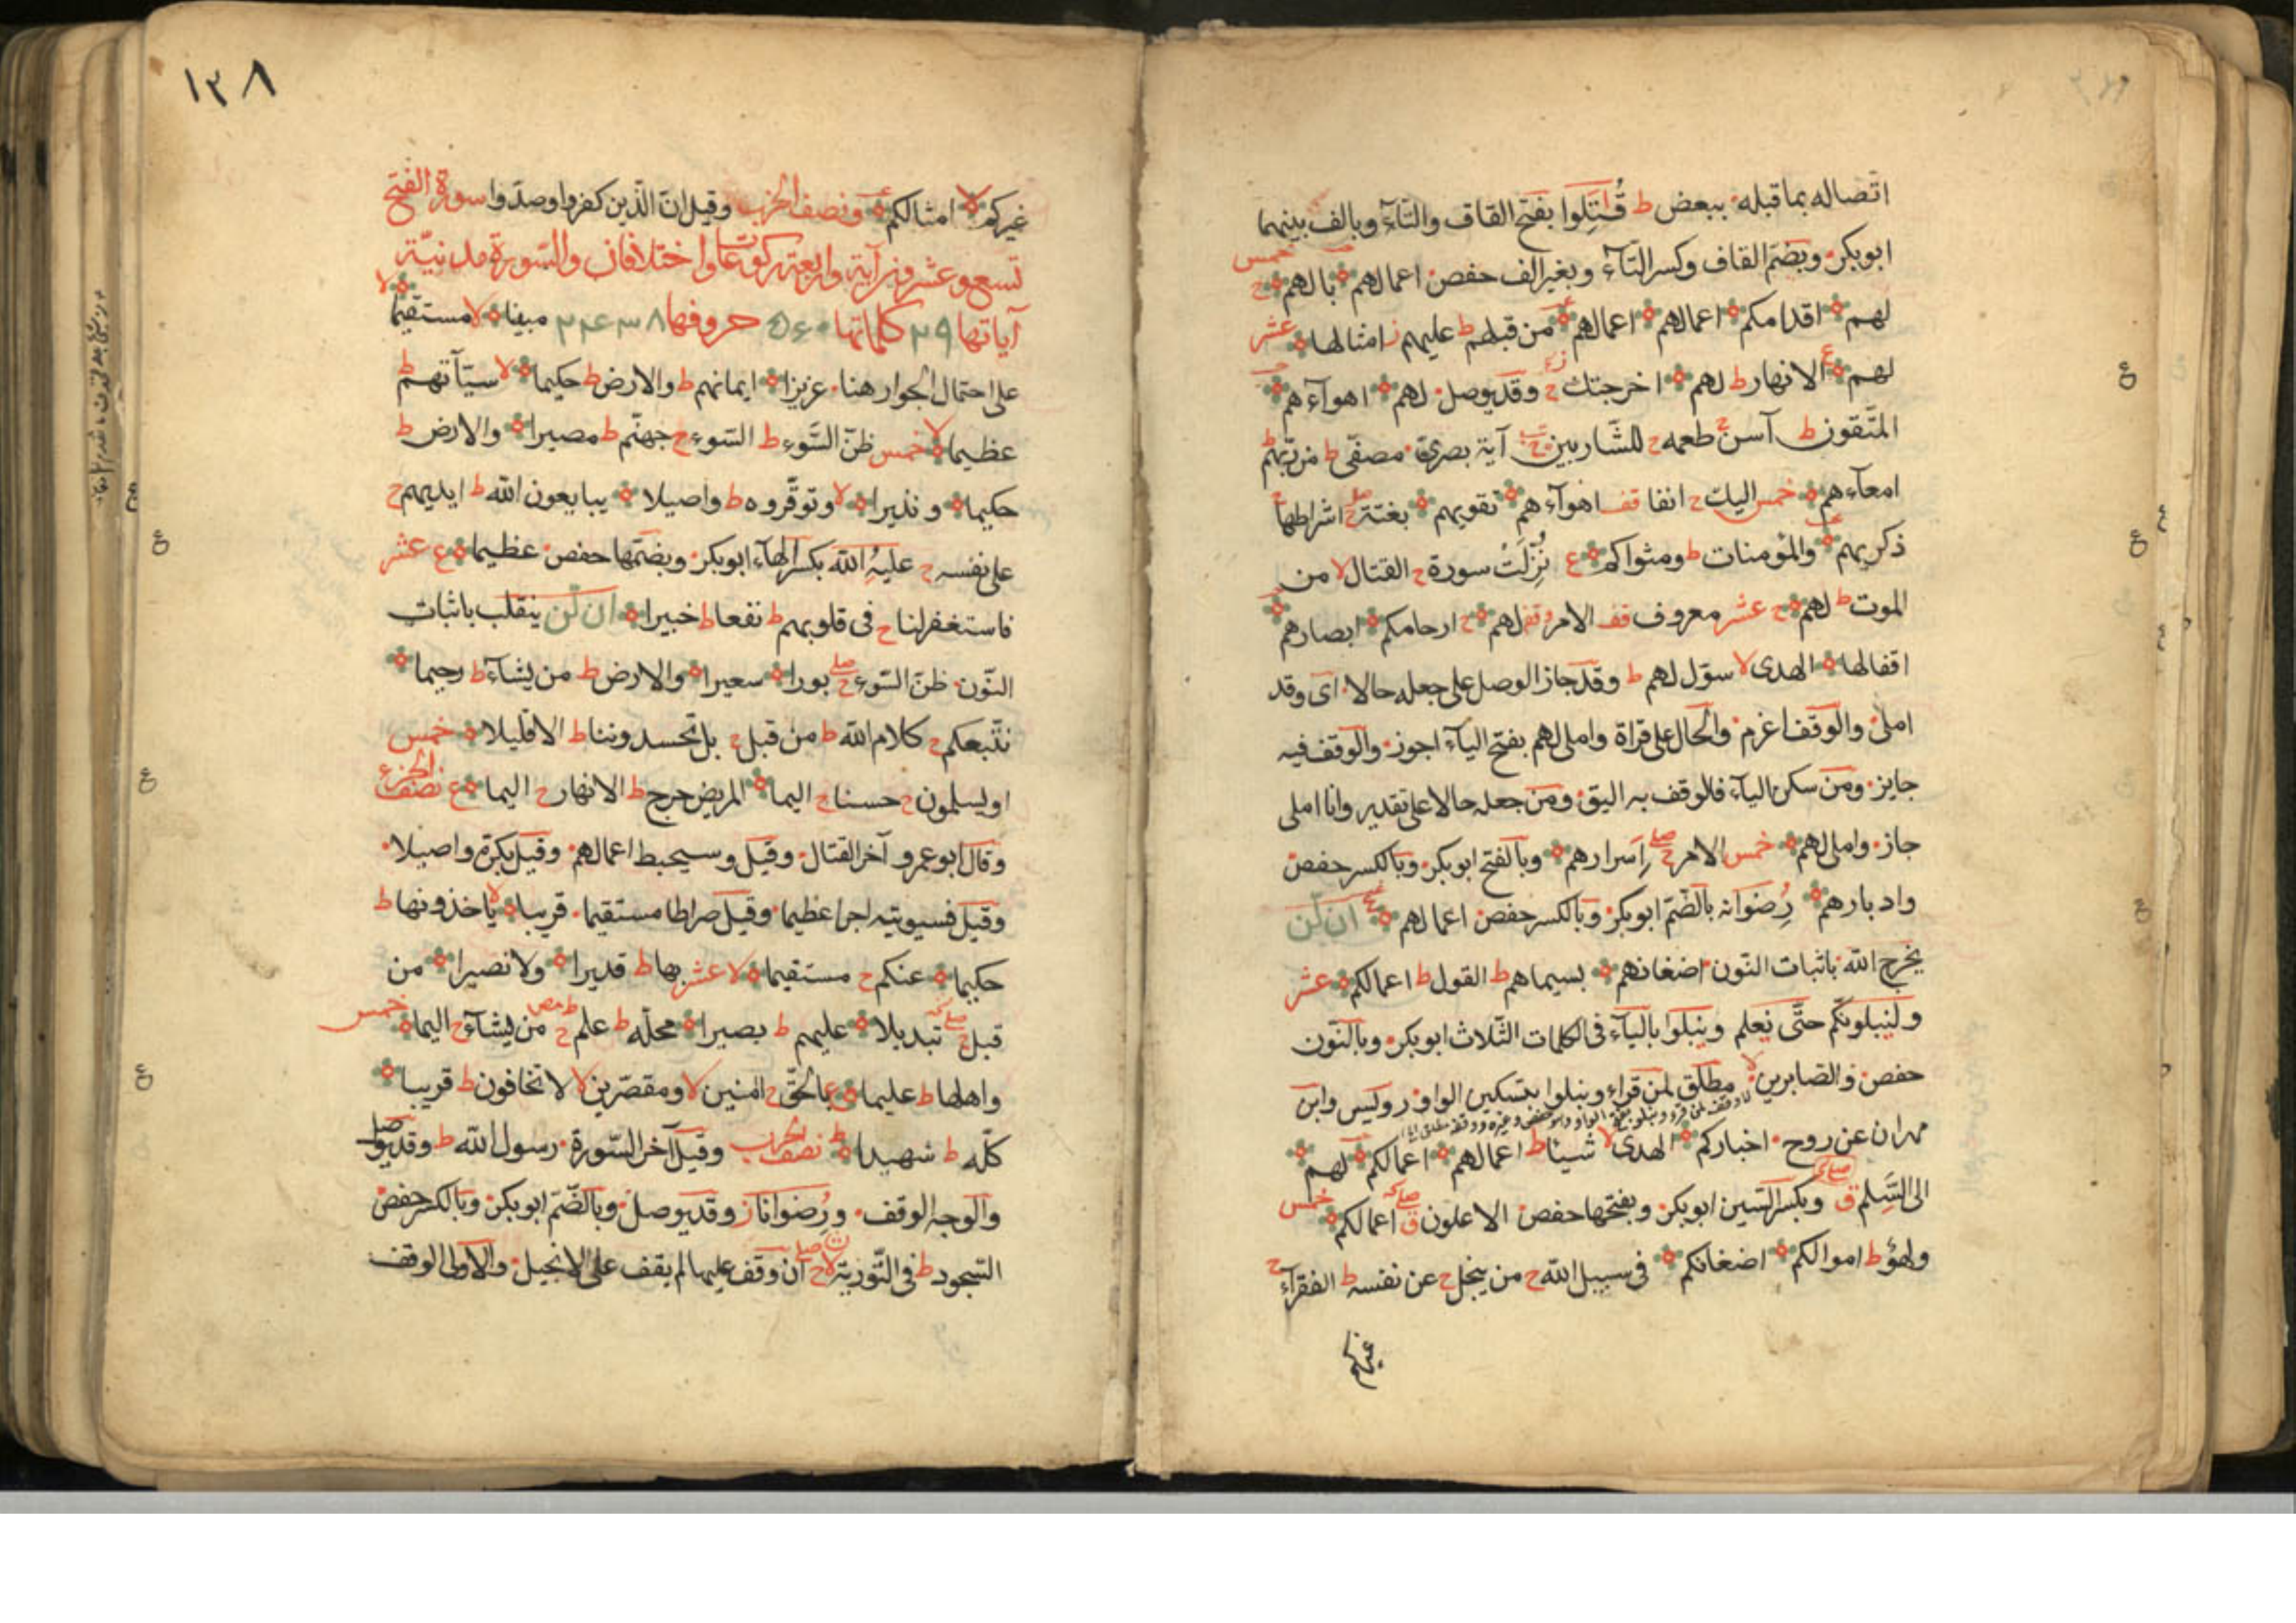 اتصاله بما قبله ببعض ط قُتِلوا بفتح القاف والتاء وبالف بينهما
ابوبكر وبضم القاف وكسر التاء وبغير الف حفص اعمالهم بالهم ج خمس
لهم اقدامكم اعمالهم اعمالهم من قبلهم ط عليهم ز امثالها عشر
لهم ع الانهار ط لهم اخرجتك ج وقد يوصل لهم اهوآءهم
المتقون ط آسن ج طعمه ج للشاربين ج آية بصرى مصفى ط من ربهم ط
امعآءهم خمس اليك ج انفا قف اهوآءهم تقويهم بغتة ج اشراطها ج
ذكريهم والمؤمنات ط ومثواكم ع نُزِّلَتْ سورة ج القتال لا من
الموت ط لهم ج عشر معروف قف الامر قف لهم ج ارحامكم ابصارهم
اقفالها الهدى لا سوّل لهم ط وقد جاز الوصل على جعله حالا اى وقد
املى والوقف اعزم والحال على قراة واملى لهم بفتح اليآء اجوز والوقف فيه
جايز ومن سكن اليآء فالوقف به اليق ومن جعله حالا على تقدير وانا املى
جاز واملى لهم خمس الامر ج صلے اسرارهم وبالفتح ابوبكر وبالكسر حفص
وادبارهم رضوانه بالضم ابوبكر وبالكسر حفص اعمالهم ع ان لن
يخرج الله باثبات النون اضغانهم بسيماهم ط القول ط اعمالكم عشر
ولنبلونكم حتى نعلم ونبلوا باليآء فى الكلمات الثلاث ابوبكر وبالنون
حفص والصابرين لا مطلق لمن قراء ونبلوا بتسكين الواو رويس وابن
مهران عن روح اخباركم الهدى لا شيئا ط اعمالهم اعمالكم لهم
الى السلم ق وبكسر السين ابوبكر وبفتحها حفص الاعلون ق صلے اعمالكم خمس
ولهو ط اموالكم اضغانكم فى سبيل الله ج من يبخل ج عن نفسه ط الفقرآء ج
غيركم
١٣٨
غيركم لا امثالكم ع ونصف الحزب وقيل ان الذين كفروا وصدوا سورة الفتح
تسع وعشرون آية واربعة ركوعات واختلافان والسورة مدنية
آياتها ٢٩ كلماتها ٥٦٠ حروفها ٢٤٣٨ مبينا لا مستقيما لا
على احتمال الجوار هنا عزيزا ايمانهم ط والارض ط حكيما لا سيآتهم ط
عظيما لا خمس ظن السوء ط السوء ج جهنم ط مصيرا والارض ط
حكيما ونذيرا لا وتوقروه ط واصيلا يبايعون الله ط ايديهم ج
على نفسه ج عليه الله بكسر الهآء ابوبكر وبضمها حفص عظيما ع عشر
فاستغفر لنا ج فى قلوبهم ط نفعا ط خبيرا ان لن ينقلب باثبات
النون ظن السوء ج صلے بورا سعيرا والارض ط من يشآء ط رحيما
نتبعكم ج كلام الله ط من قبل ج بل تحسدوننا ط الا قليلا خمس
او يسلمون ج حسنا ج اليما المريض حرج ط الانهار ج اليما ع نصف الجزء
وقال ابو عمرو آخر القتال وقيل وسيحبط اعمالهم وقيل بكرة واصيلا
وقيل فسيوتيه اجرا عظيما وقيل صراطا مستقيما قريبا لا ياخذونها ط
حكيما عنكم ج مستقيما لا عشر بها ط قديرا ولا نصيرا من
قبل ج صلے تبديلا عليهم ط بصيرا محله ط علم ج من يشآء ج اليما خمس
واهلها ط عليما ع بالحق ج امنين لا ومقصرين لا لا تخافون ط قريبا
كله ط شهيدا ط نصف الحزب وقيل آخر السورة رسول الله ط وقد يوصل
والوجه الوقف ورضوانا ز وقد يوصل وبالضم ابوبكر وبالكسر حفص
السجود ط فى التورية ج صلے ان وقف عليها لم يقف على الانجيل والاولى الوقف